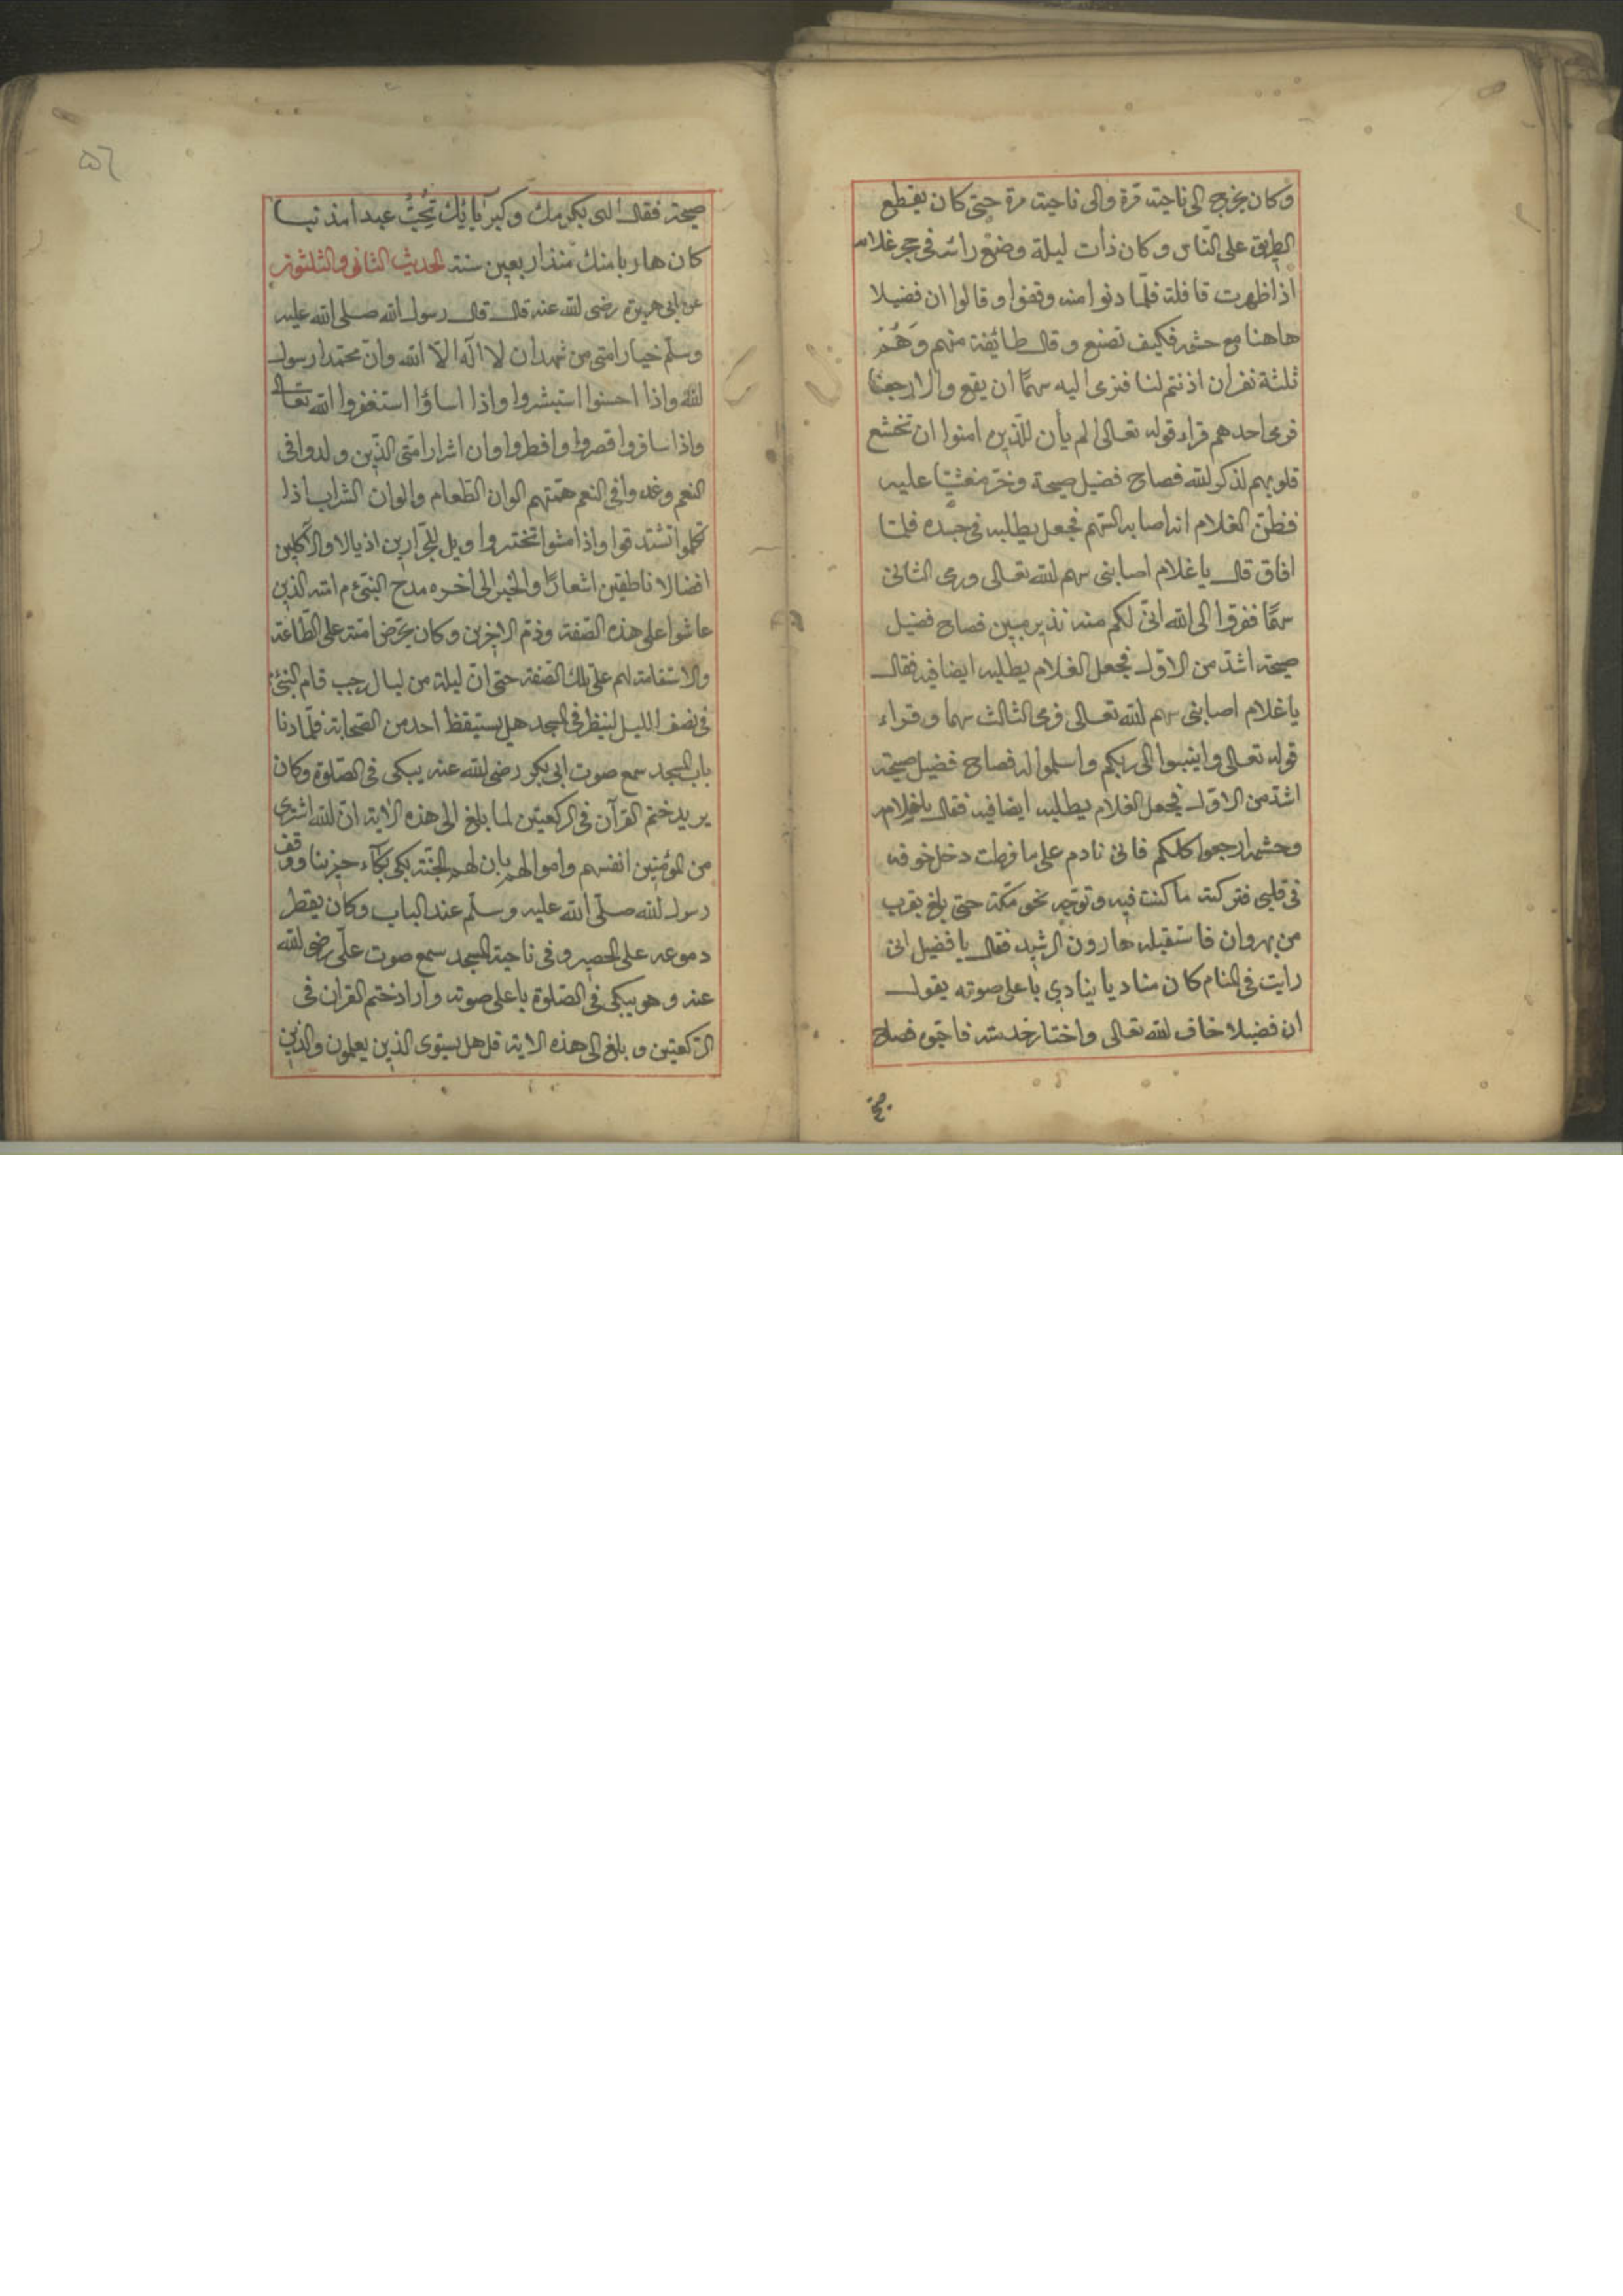 وكان يخرج الى ناحية مرة والى ناحية مرة حتى كان يقطع
الطريق على الناس وكان ذات ليلة وضع راسه فى حجر غلامه
اذا ظهرت قافلة فلما دنوا منه وقفوا وقالوا ان فضيلا
هاهنا مع حشمه فكيف نصنع وقال طائفة منهم وَهُمْ
ثلثة نفر ان اذنتم لنا فنرمى اليه سهمًا ان يقع والا رجعنا
فرمى احدهم قراء قوله تعالى الم يأن للذين امنوا ان تخشع
قلوبهم لذكر الله فصاح فضيل صيحة وخر مغشيًّا عليه
فظن الغلام انه اصابه السهم فجعل يطلبه فى جسده فلما
افاق قال يا غلام اصابنى سهم الله تعالى ورمى الثانى
سهمًا ففروا الى الله انى لكم منه نذير مبين فصاح فضيل
صيحة اشد من الاول فجعل الغلام يطلبه ايضا فيه فقال
يا غلام اصابنى سهم الله تعالى فرمى الثالث سهما وقراء
قوله تعالى وانيبوا الى ربكم واسلموا له فصاح فضيل صيحة
اشد من الاول فجعل الغلام يطلبه ايضا فيه فقال يا غلام
وحشمه ارجعوا كلكم فانى نادم على ما فرطت دخل خوفه
فى قلبى فتركت ما كنت فيه وتوجه نحو مكة حتى بلغ بقرب
من نهروان فاستقبله هارون الرشيد فقال يا فضيل انى
رايت فى المنام كان مناديا ينادي باعلى صوته يقول
ان فضيلا خاف الله تعالى واختار خدمته فاحبوه فصاح
صيحة فقال الهى بكرمك وكبريائك تُحِبُّ عبدا مذنبا
كان هاربا منك منذ اربعين سنة الحديث الثانى والثلثون
عن ابى هريرة رضى الله عنه قال قال رسول الله صلى الله عليه
وسلم خيار امتى من شهد ان لا اله الا الله وان محمدا رسول
الله واذا احسنوا استبشروا واذا اساؤا استغفروا الله تعالى
واذا سافروا قصروا وافطروا وان اشرار امتى الذين ولدوا فى
النعم وغدوا فى النعم همتهم الوان الطعام والوان الشراب اذا
تكلموا تشدقوا واذا مشوا تبختروا ويل للجرارين اذيالا والآكلين
افضالا ناطقين اشعارًا والخبر الى اخره مدح النبى م امته الذين
عاشوا على هذه الصفة وذم الاخرين وكان يحرض امته على الطاعة
والاستقامة لهم على تلك الصفة حتى ان ليلة من ليال رجب قام النبى
فى نصف الليل لينظر فى المسجد هل يستيقظ احد من الصحابة فلما دنا
باب المسجد سمع صوت ابى بكر رضى الله عنه يبكى فى الصلوة وكان
يريد ختم القرآن فى الركعتين لما بلغ الى هذه الاية ان الله اشترى
من المؤمنين انفسهم واموالهم بان لهم الجنة بكى بكاء حزينا ووقف
رسول الله صلى الله عليه وسلم عند الباب وكان يقطر
دموعه على الحصير وفى ناحية المسجد سمع صوت على رضى الله
عنه وهو يبكى فى الصلوة باعلى صوته واراد ختم القران فى
الركعتين وبلغ الى هذه الاية قل هل يستوى الذين يعلمون والذين